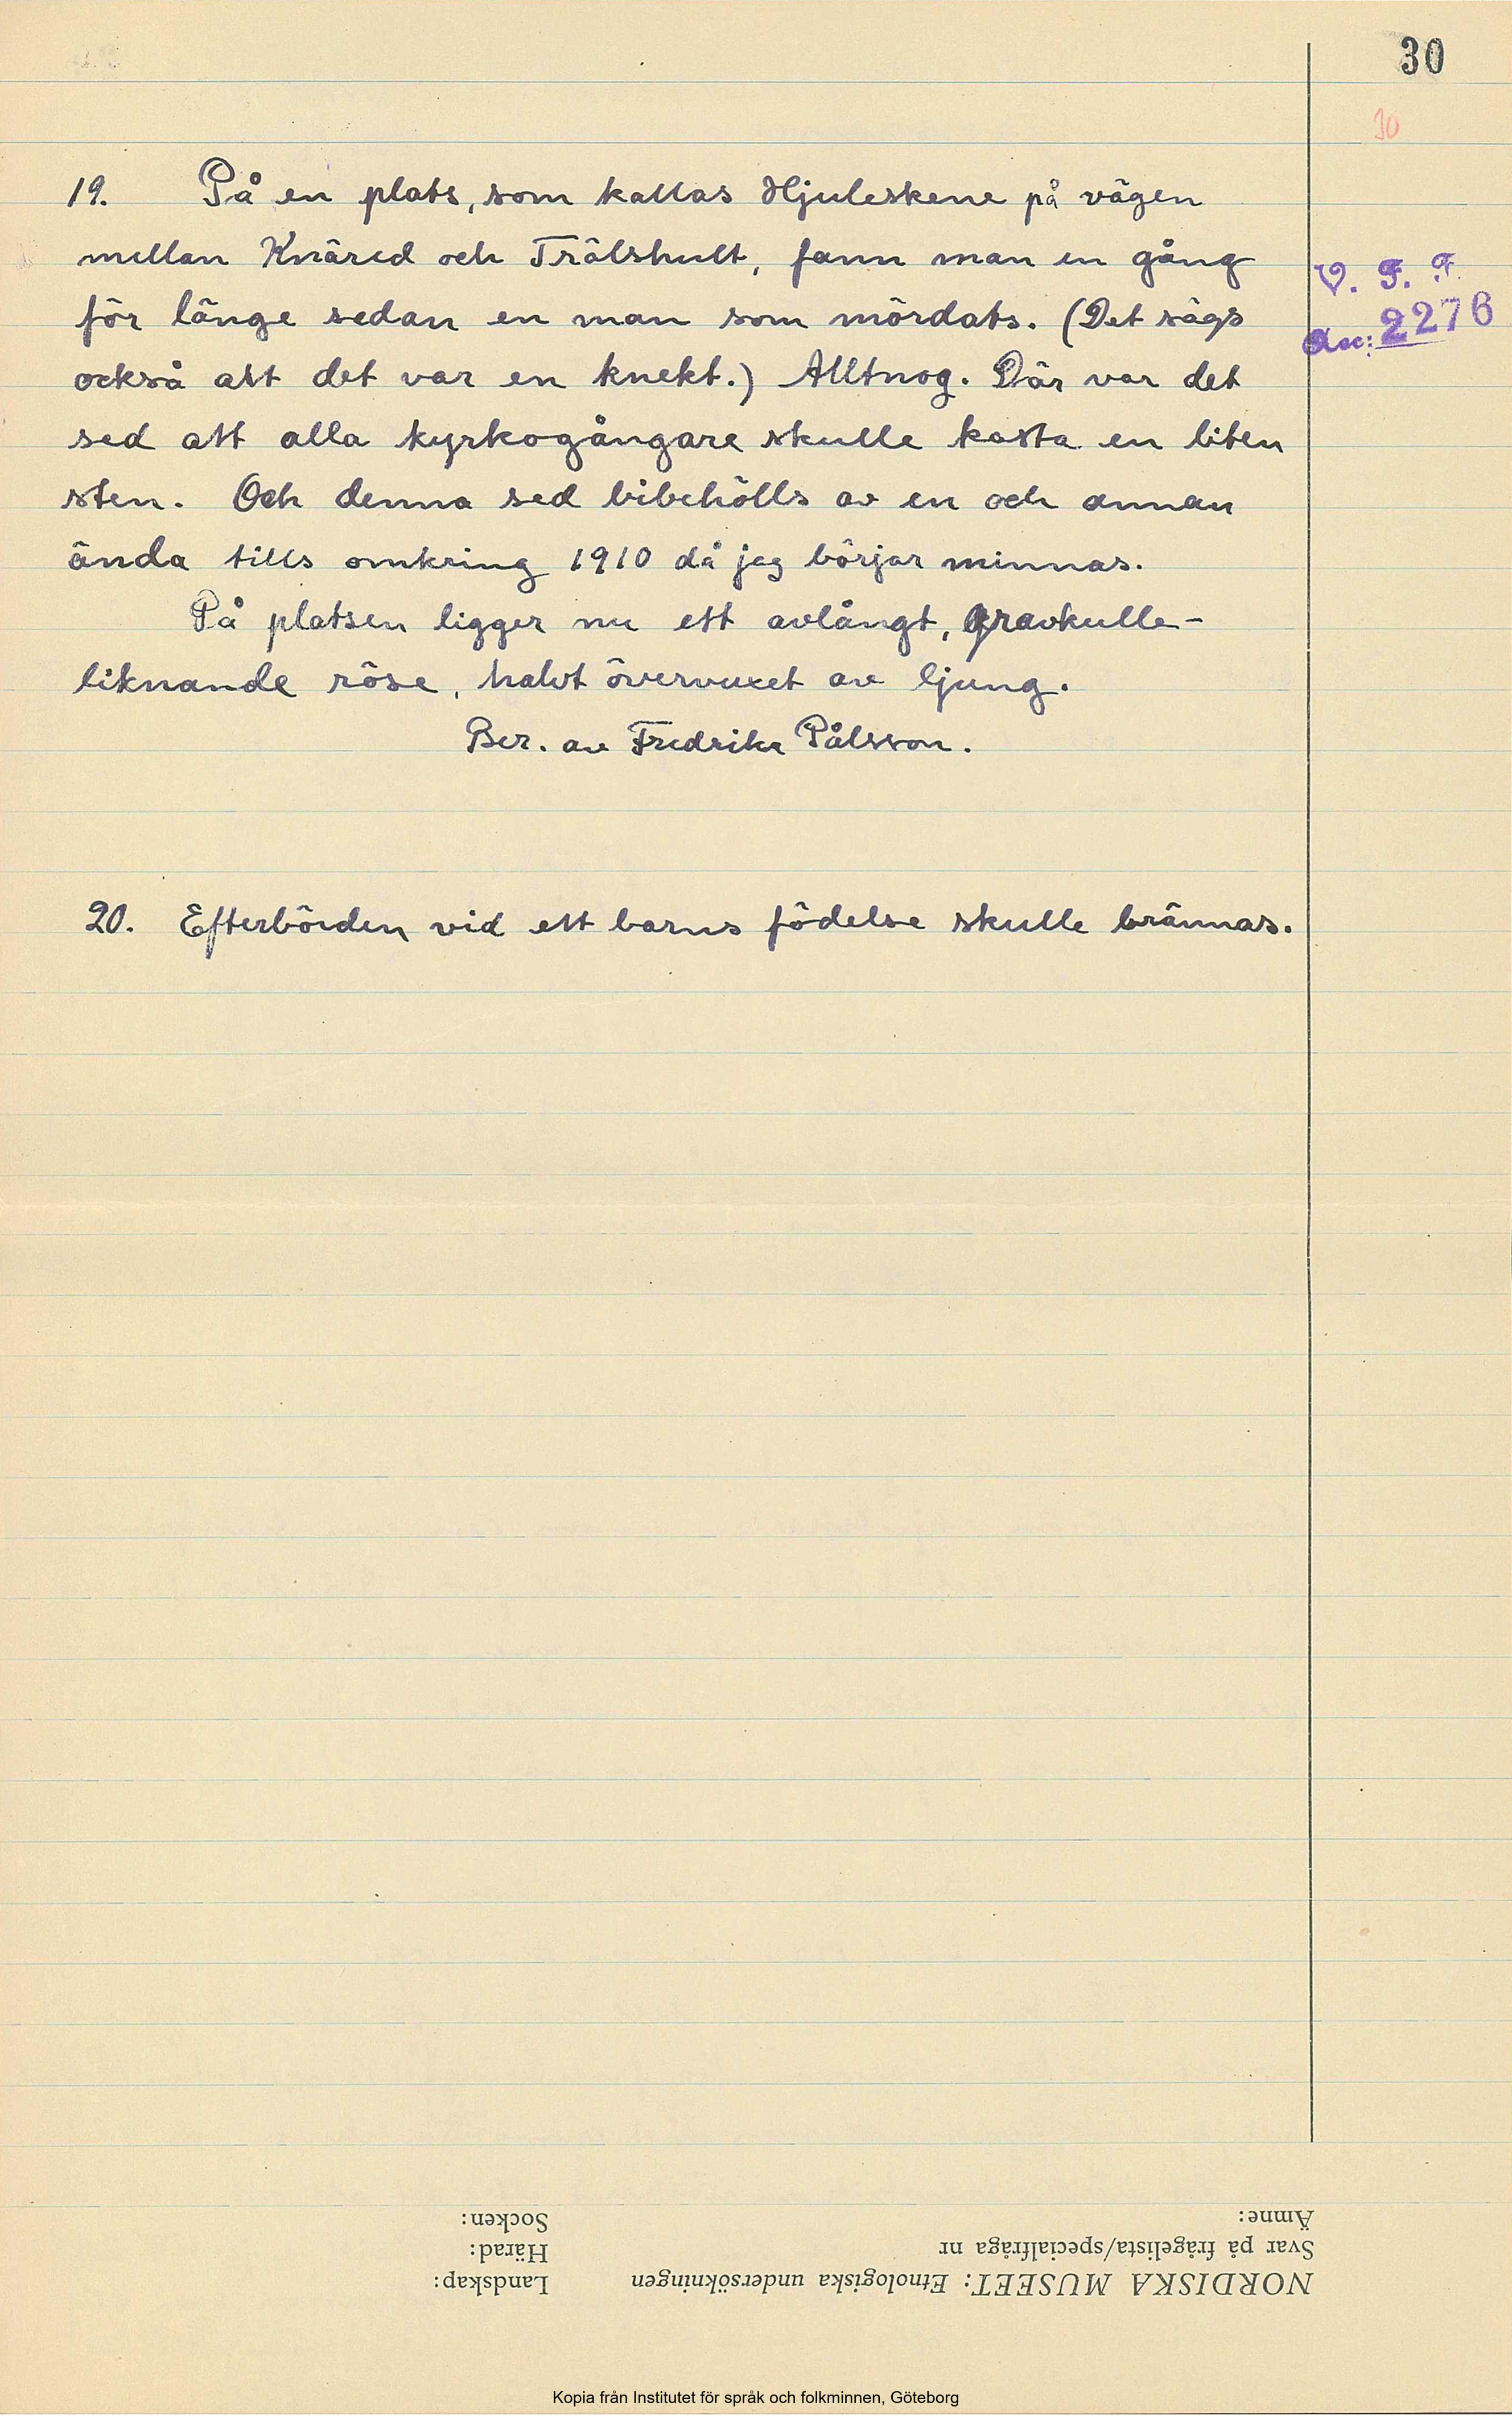 30
10
19. På en plats, som kallas Hjuleskene på vägen
mellan Knäred och Trälshult, fann man en gång
för länge sedan en man som mördats. (Det sägs
också att det var en knekt.) Alltnog. Där var det
sed att alla kyrkogångare skulle kasta en liten
sten. Och denna sed bibehölls av en och annan
ända tills omkring 1910 då jag börjar minnas.
På platsen ligger nu ett avlångt, gravkulle-
liknande röse, halvt övervuxet av ljung.
Ber. av Fredrika Pålsson.
V. F. F.
Acc: 2276
20. Efterbörden vid ett barns födelse skulle brännas.
NORDISKA MUSEET: Etnologiska undersökningen
Svar på frågelista/specialfråga nr
Ämne:
Landskap:
Härad:
Socken:
Kopia från Institutet för språk och folkminnen, Göteborg